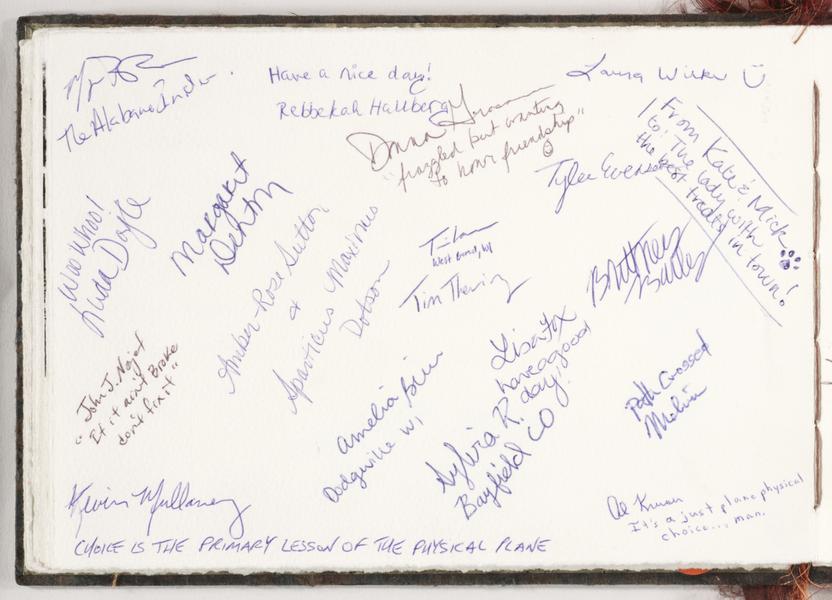 The Alabama Insider.
Have a nice day!
Rebbekah Hallberg
Laura Wilken
Donna
"frazzled but wanting
to honor friendship"
From Kate & Mick
to! The lady with
the best treats in town!
Tyler Evenson
Woo Whoo!
Linda Doyle
Margaret
Denton
Amber-Rose Sutton
&
Sparticus Maximus
Dobson
West Bend, WI
Tim
Brittney
Bailey
John J. Nojet
"If it ain't Broke
don't fix it"
Amelia
Dodgeville WI
Lisa Fox
have a good
day!
Sylvia R.
Bayfield CO
Path Crossed
Melvin
Kevin Mullaney
CHOICE IS THE PRIMARY LESSON OF THE PHYSICAL PLANE
Al
It's a just plane physical
choice... man.